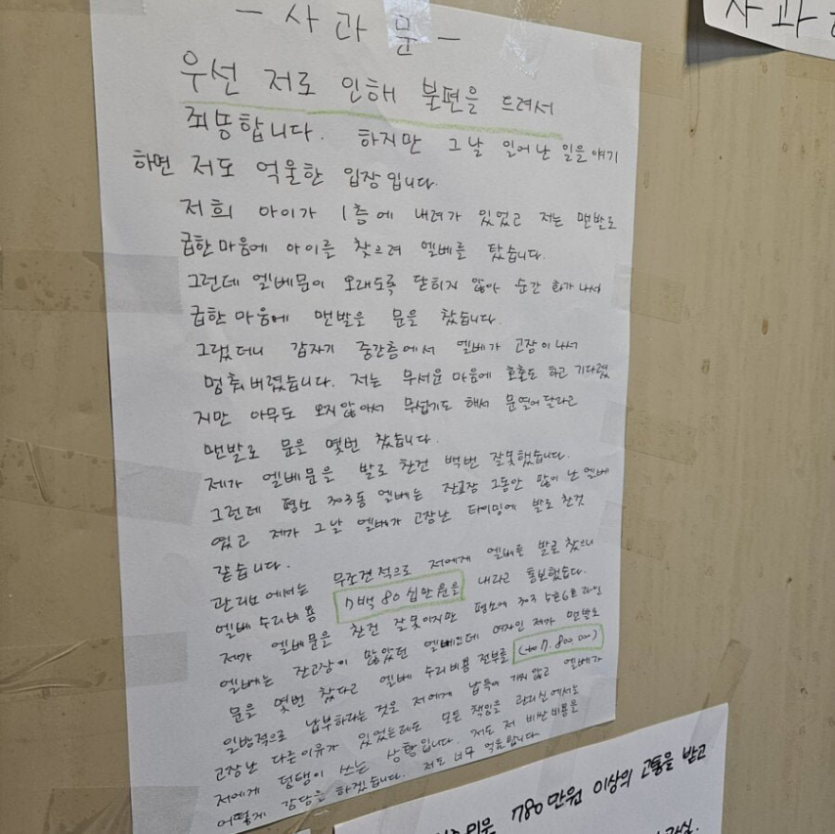 - 사 과 문 -
우선 저로 인해 불편을 드려서
죄송합니다. 하지만 그날 일어난 일을 얘기
하면 저도 억울한 입장입니다.
저희 아이가 1층에 내려가 있었고 저는 맨발로
급한마음에 아이를 찾으려 엘베를 탔습니다.
그런데 엘베문이 오래도록 닫히지 않아 순간 화가나서
급한마음에 맨발로 문을 찼습니다.
그랬더니 갑자기 중간층에서 엘베가 고장이나서
멈춰버렸습니다. 저는 무서운 마음에 호출도 하고 기다렸
지만 아무도 오지않아서 무섭기도 해서 문열어달라고
맨발로 문을 몇번 찼습니다.
제가 엘베문을 발로 찬건 백번 잘못했습니다.
그런데 평소 303동 엘베는 잔고장 그동안 많이 난 엘베
였고 제가 그날 엘베가 고장난 타이밍에 발로 찬것
같습니다.
관리소에서는 무조건적으로 저에게 엘베를 발로 찼으니
엘베 수리비용 7백 80십만원을 내라고 통보했습니다.
제가 엘베문을 찬건 잘못이지만 평소에 303 5호6호 라인
엘베는 잔고장이 많았던 엘베인데 여자인 제가 맨발로
문을 몇번 찼다고 엘베 수리비용 전부를 (7.800.000)
일방적으로 납부하라는 것은 저에게 납득이 가지 않고 엘베가
고장난 다른이유가 있었는데도 모든 책임을 관리실에서는
저에게 덤탱이 쓰는 상황입니다. 저도 저 비싼비용을
어떻게 감당을 하겠습니까. 저도 너무 억울합니다.
사과
780만원 이상의 고통을 받고